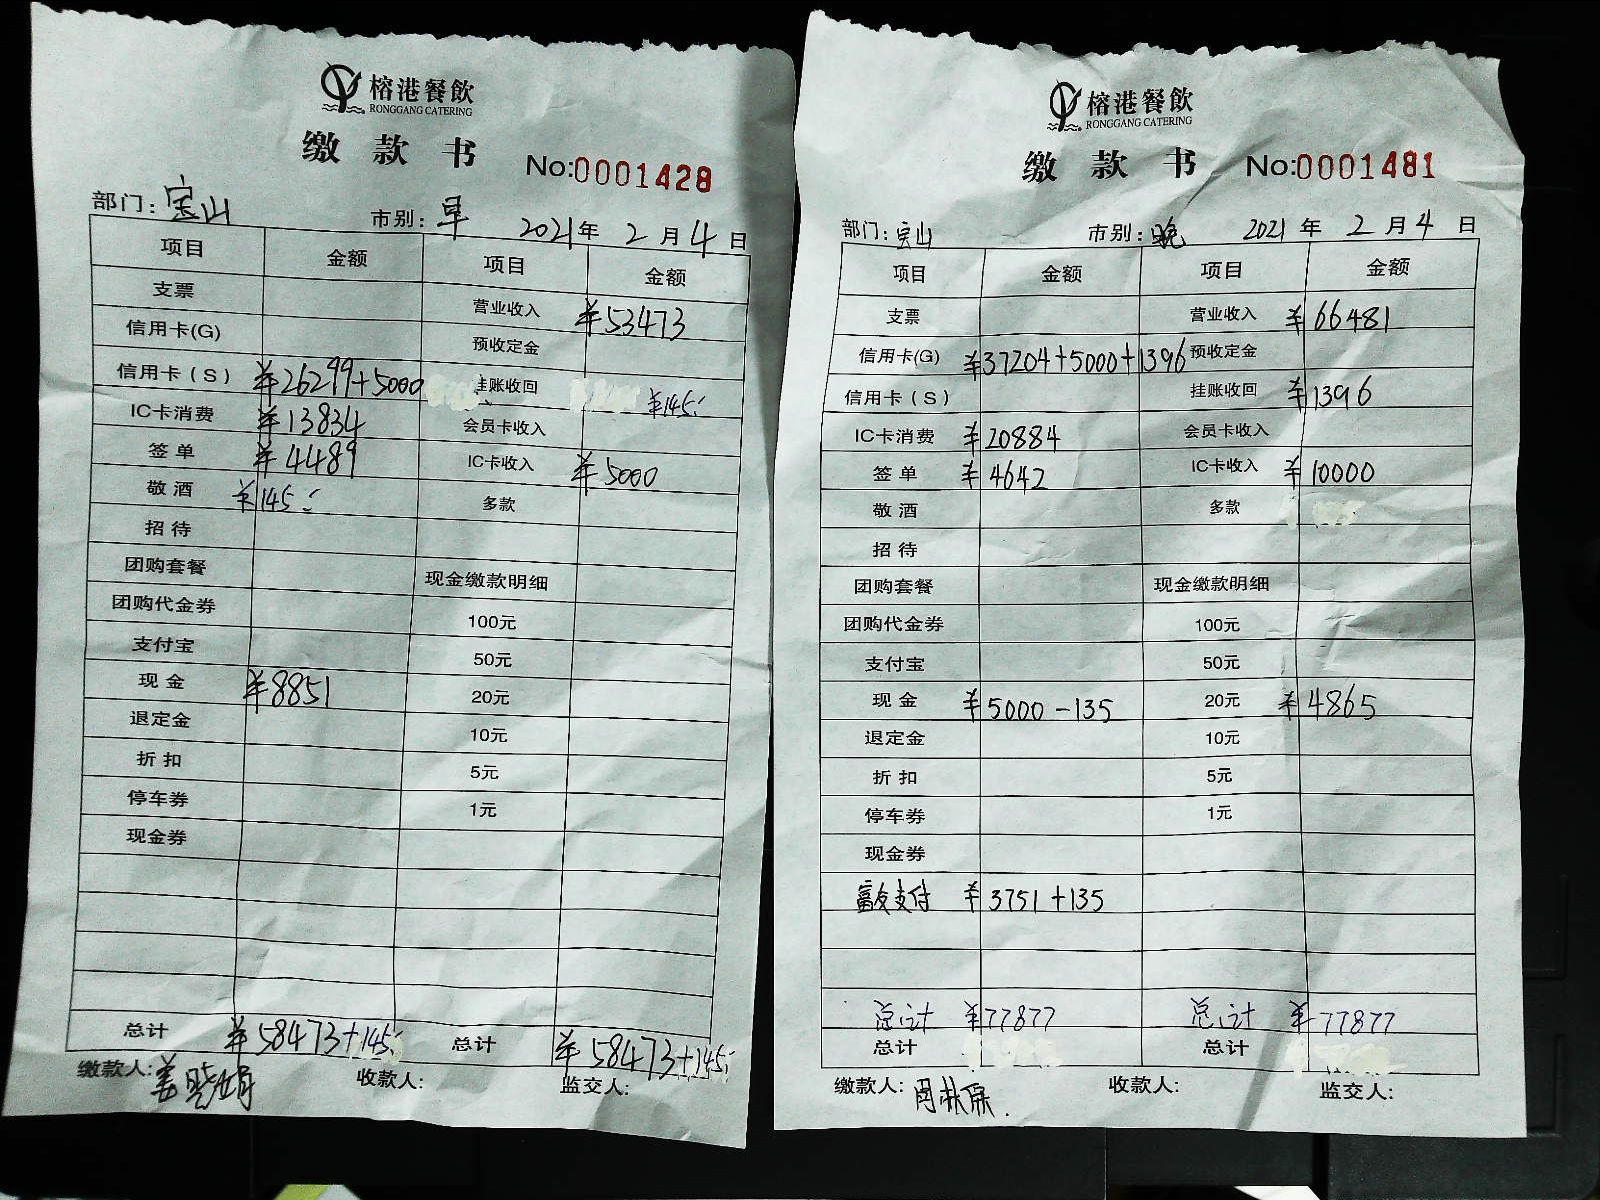 榕港餐飲
RONGGANG CATERING
缴款书 No:0001428
部门：宝山 市别：早 2021年2月4日
项目 金额 项目 金额
支票 营业收入 ¥53473
信用卡(G) 预收定金
信用卡（S） ¥26299+5000 挂账收回 ¥145.-
IC卡消费 ¥13834 会员卡收入
签单 ¥4489 IC卡收入 ¥5000
敬酒 ¥145.- 多款
招待
团购套餐 现金缴款明细
团购代金券 100元
支付宝 50元
现金 ¥8851 20元
退定金 10元
折扣 5元
停车券 1元
现金券
总计 ¥58473+145.- 总计 ¥58473+145.-
缴款人: 收款人: 监交人:
榕港餐飲
RONGGANG CATERING
缴款书 No:0001481
部门：宝山 市别：晚 2021年2月4日
项目 金额 项目 金额
支票 营业收入 ¥66481
信用卡(G) ¥37204+5000+1396 预收定金
信用卡（S） 挂账收回 ¥1396
IC卡消费 ¥20884 会员卡收入
签单 ¥4642 IC卡收入 ¥10000
敬酒 多款
招待
团购套餐 现金缴款明细
团购代金券 100元
支付宝 50元
现金 ¥5000-135 20元 ¥4865
退定金 10元
折扣 5元
停车券 1元
现金券
富友支付 ¥3751+135
总计 ¥77877 总计 ¥77877
总计 总计
缴款人: 收款人: 监交人: